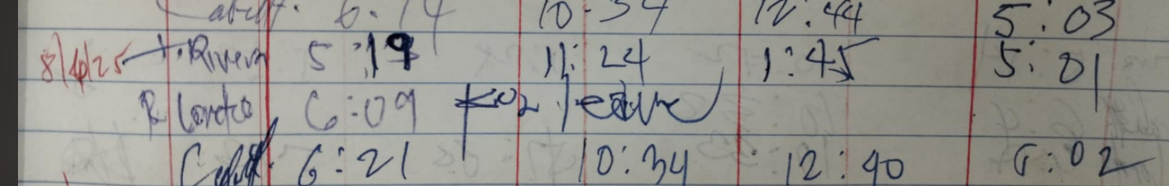 6:14 10:34 12:44 5:03
8/4/25 T. Rivera 5:19 11:24 1:45 5:01
R 6:09 leave
6:21 10:34 12:40 6:02